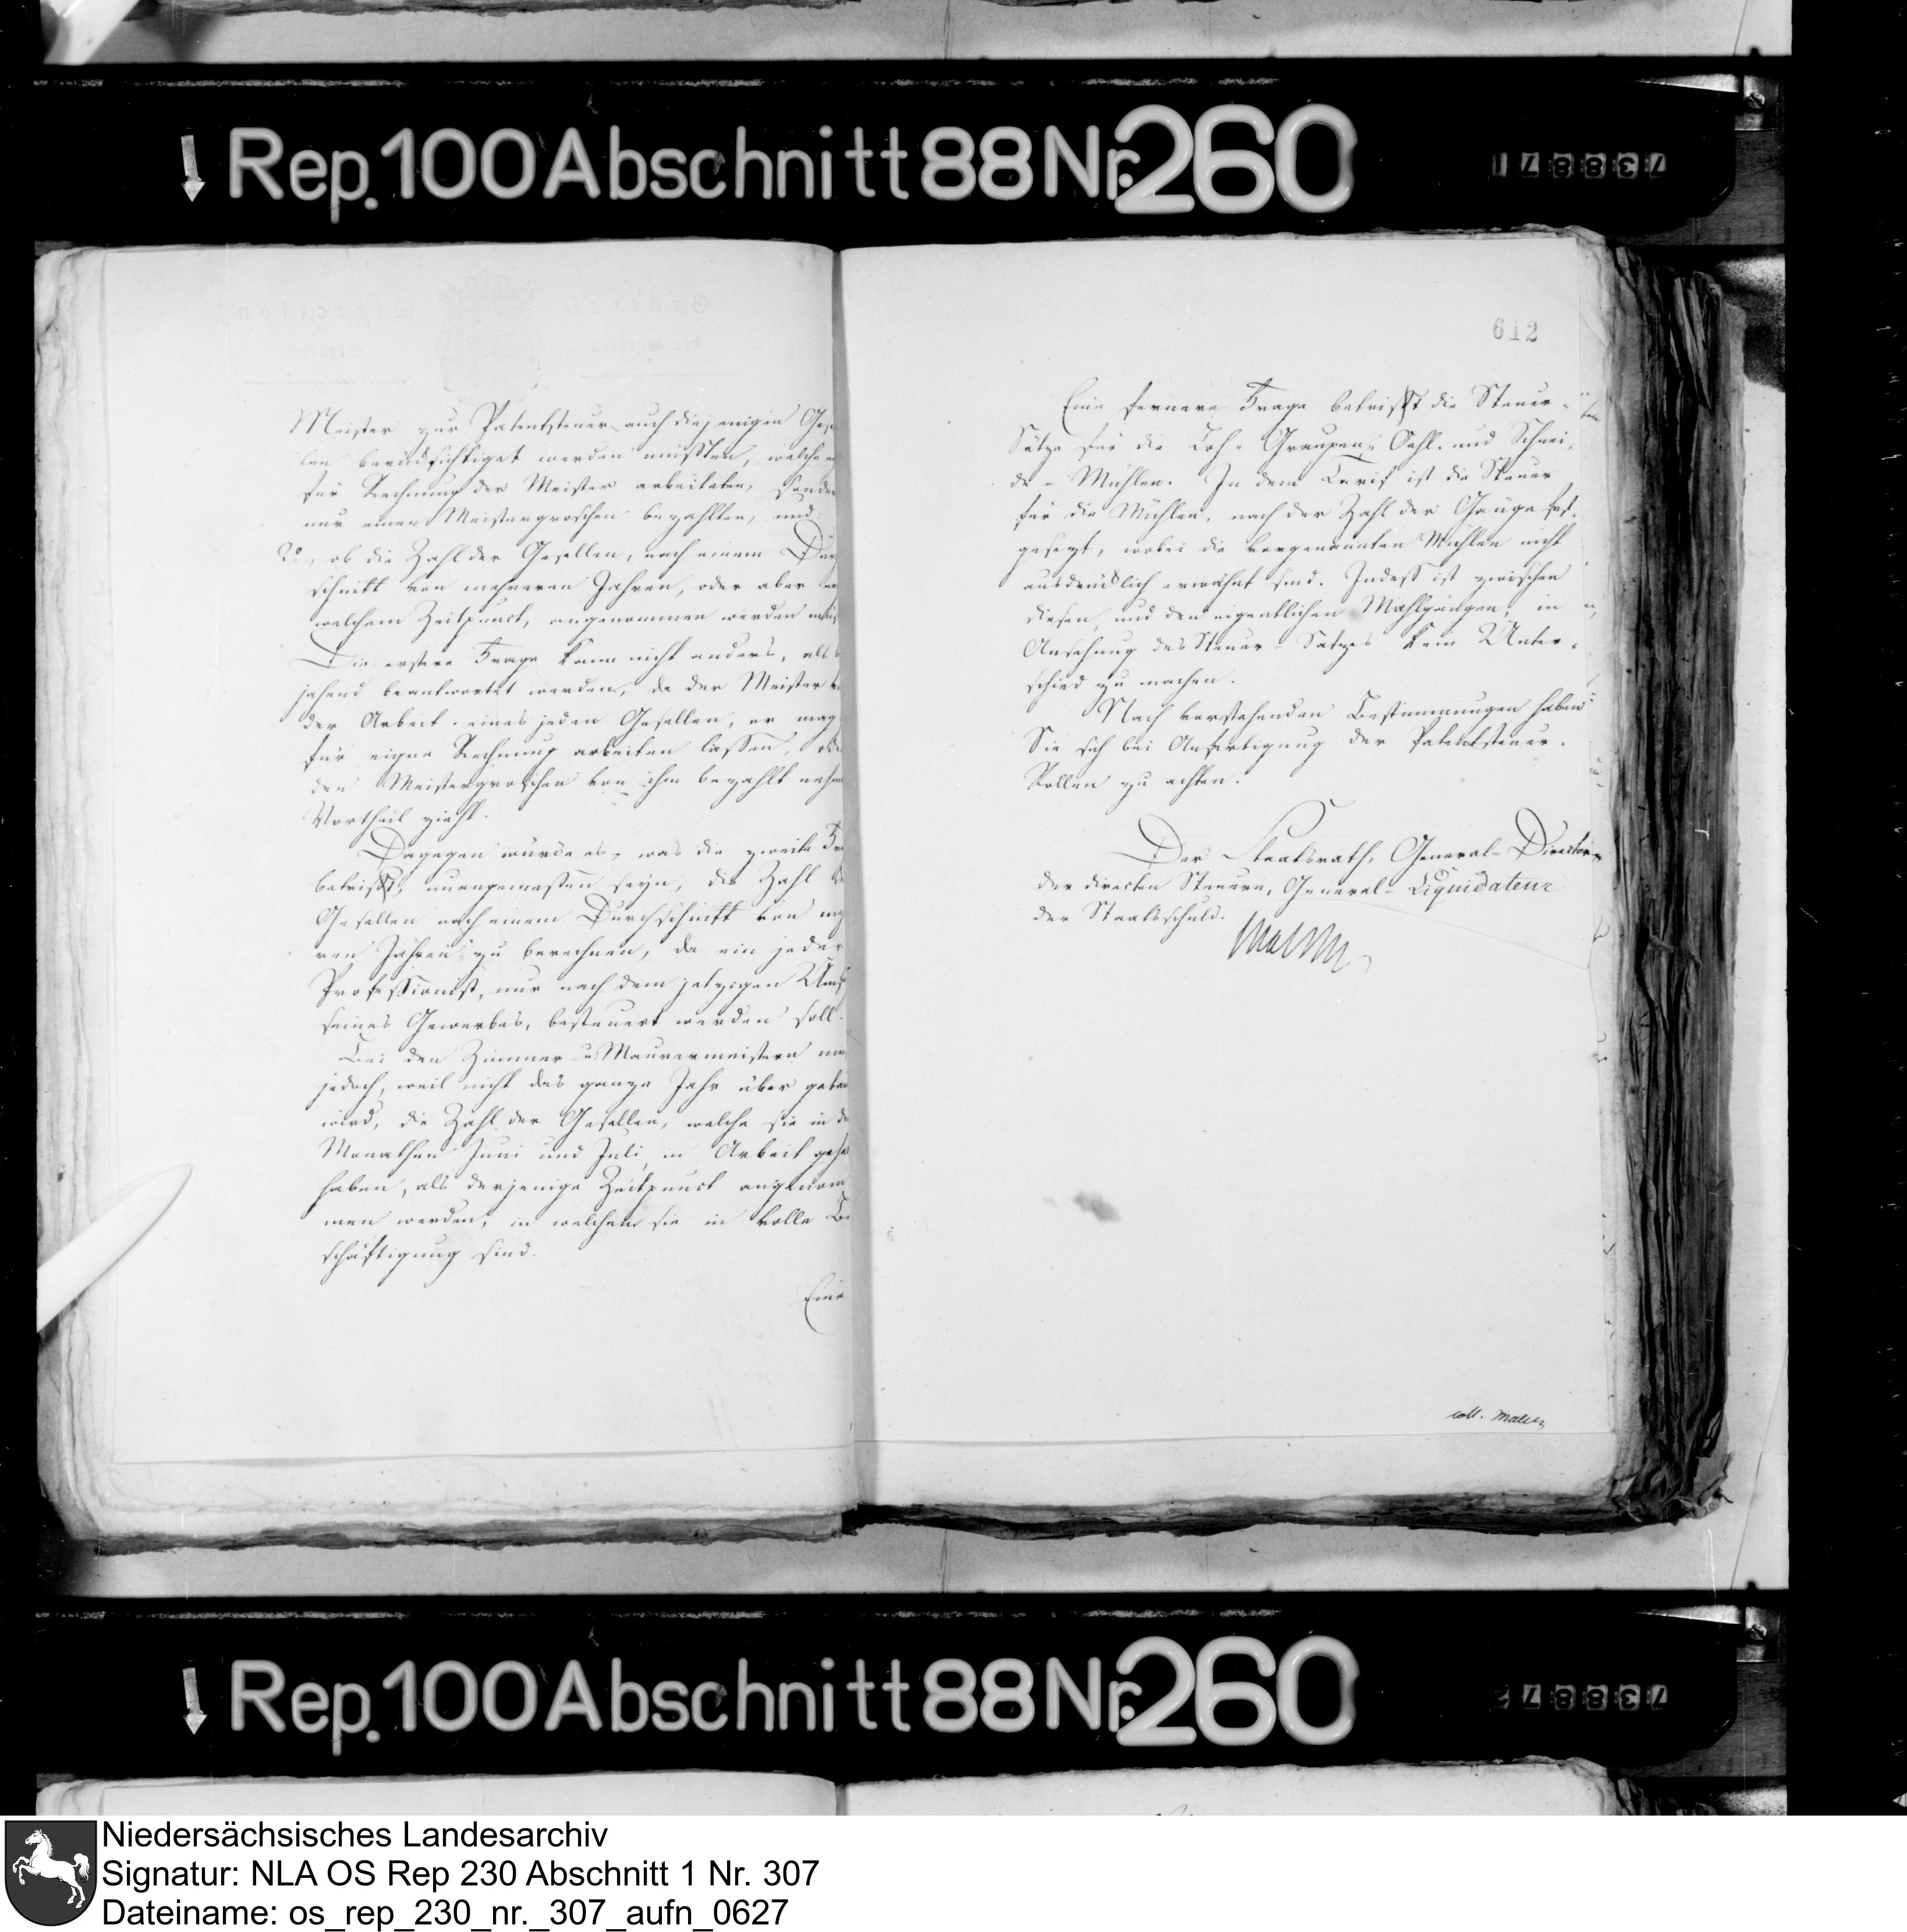 Rep. 100 Abschnitt 88 Nr. 260
738871
Meister zur Patentsteuer auch diejenigen Gesel
len berücksichtiget werden müßten, welche
für Rechnung der Meister arbeiteten, sonder
nur einen Meistergroschen bezahlten, und
2o., ob die Zahl der Gesellen, nach einem Dur
schnitt von mehreren Jahren, oder aber
welchem Zeitpunct, angenommen werden müs
Die erstere Frage kann nicht anders, als b
jahend beantwortet werden, da der Meister
der Arbeit eines jeden Gesellen, er mag
für eigne Rechnung arbeiten lassen, ode
den Meistergroschen von ihm bezahlt nehm
Vortheil zieht.
Dagegen würde es, was die zweite Fra
betrifft, unangemessen seyn, die Zahl de
Gesellen nach einem Durchschnitt von meh
ren Jahren zu berechnen, da ein jeder
Professionist, nur nach dem jetzigen Umf
seines Gewerbes, besteuert werden soll.
Bei den Zimmer- u. Maurermeistern
jedoch, weil nicht das ganze Jahr über gebau
wird, die Zahl der Gesellen, welche sie in de
Monathen Juni und Juli in Arbeit geha
haben, als derjenige Zeitpunct angenom
men werden, in welchem sie in volle Be
schäftigung sind.
Eine
612
Eine fernere Frage betrifft die Steuer-
Sätze für die Loh- Graupen- Oehl- und Schnei-
de-Mühlen. In dem Tarif ist die Steuer
für die Mühlen, nach der Zahl der Gänge fest-
gesetzt, wobei die vorgenannten Mühlen nicht
ausdrücklich erwähnt sind. Indess ist zwischen
diesen, und den eigentlichen Mahlgängen, in
Ansehung des Steuer-Satzes kein Unter-
schied zu machen.
Nach vorstehenden Bestimmungen haben
Sie sich bei Anfertigung der Patentsteuer-
Rollen zu achten.
Der Staatsrath, General-Director
der directen Steuern, General-Liquidateur
der Staatsschuld.
Malchus
Rep. 100 Abschnitt 88 Nr. 260
738872
Niedersächsisches Landesarchiv
Signatur: NLA OS Rep 230 Abschnitt 1 Nr. 307
Dateiname: os_rep_230_nr._307_aufn_0627